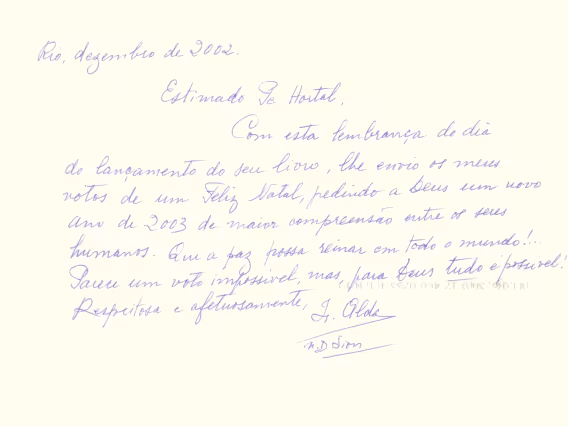 Rio, dezembro de 2002.
Estimado Pe Hortal,
Com esta lembrança do dia
do lançamento do seu livro, lhe envio os meus
votos de um Feliz Natal, pedindo a Deus um novo
ano de 2003 de maior compreensão entre os seres
humanos. Que a paz possa reinar em todo o mundo!...
Parece um voto impossível, mas, para Deus tudo é possível!
Respeitosa e afetuosamente, I. Alda
N.D Sion